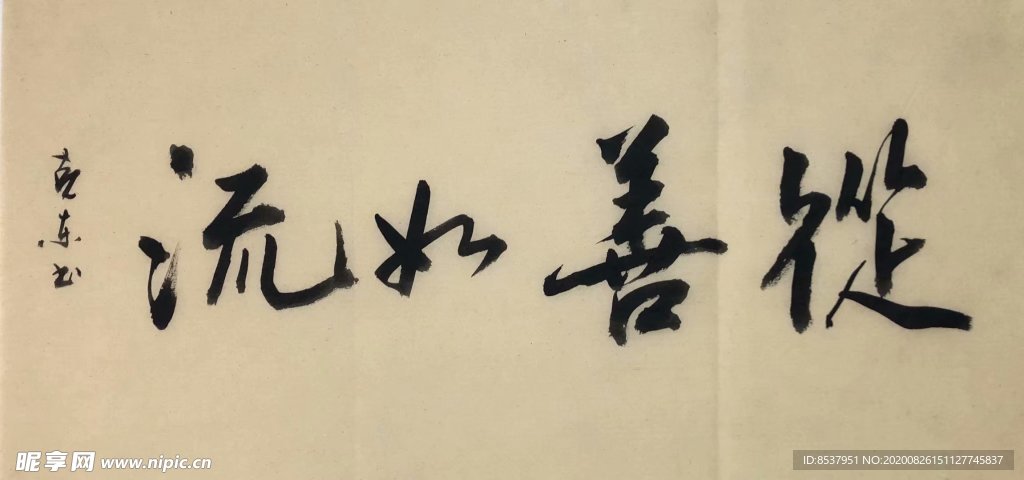 從善如流
克东书
昵享网 www.nipic.cn
ID:8537951 NO:20200826151127745837